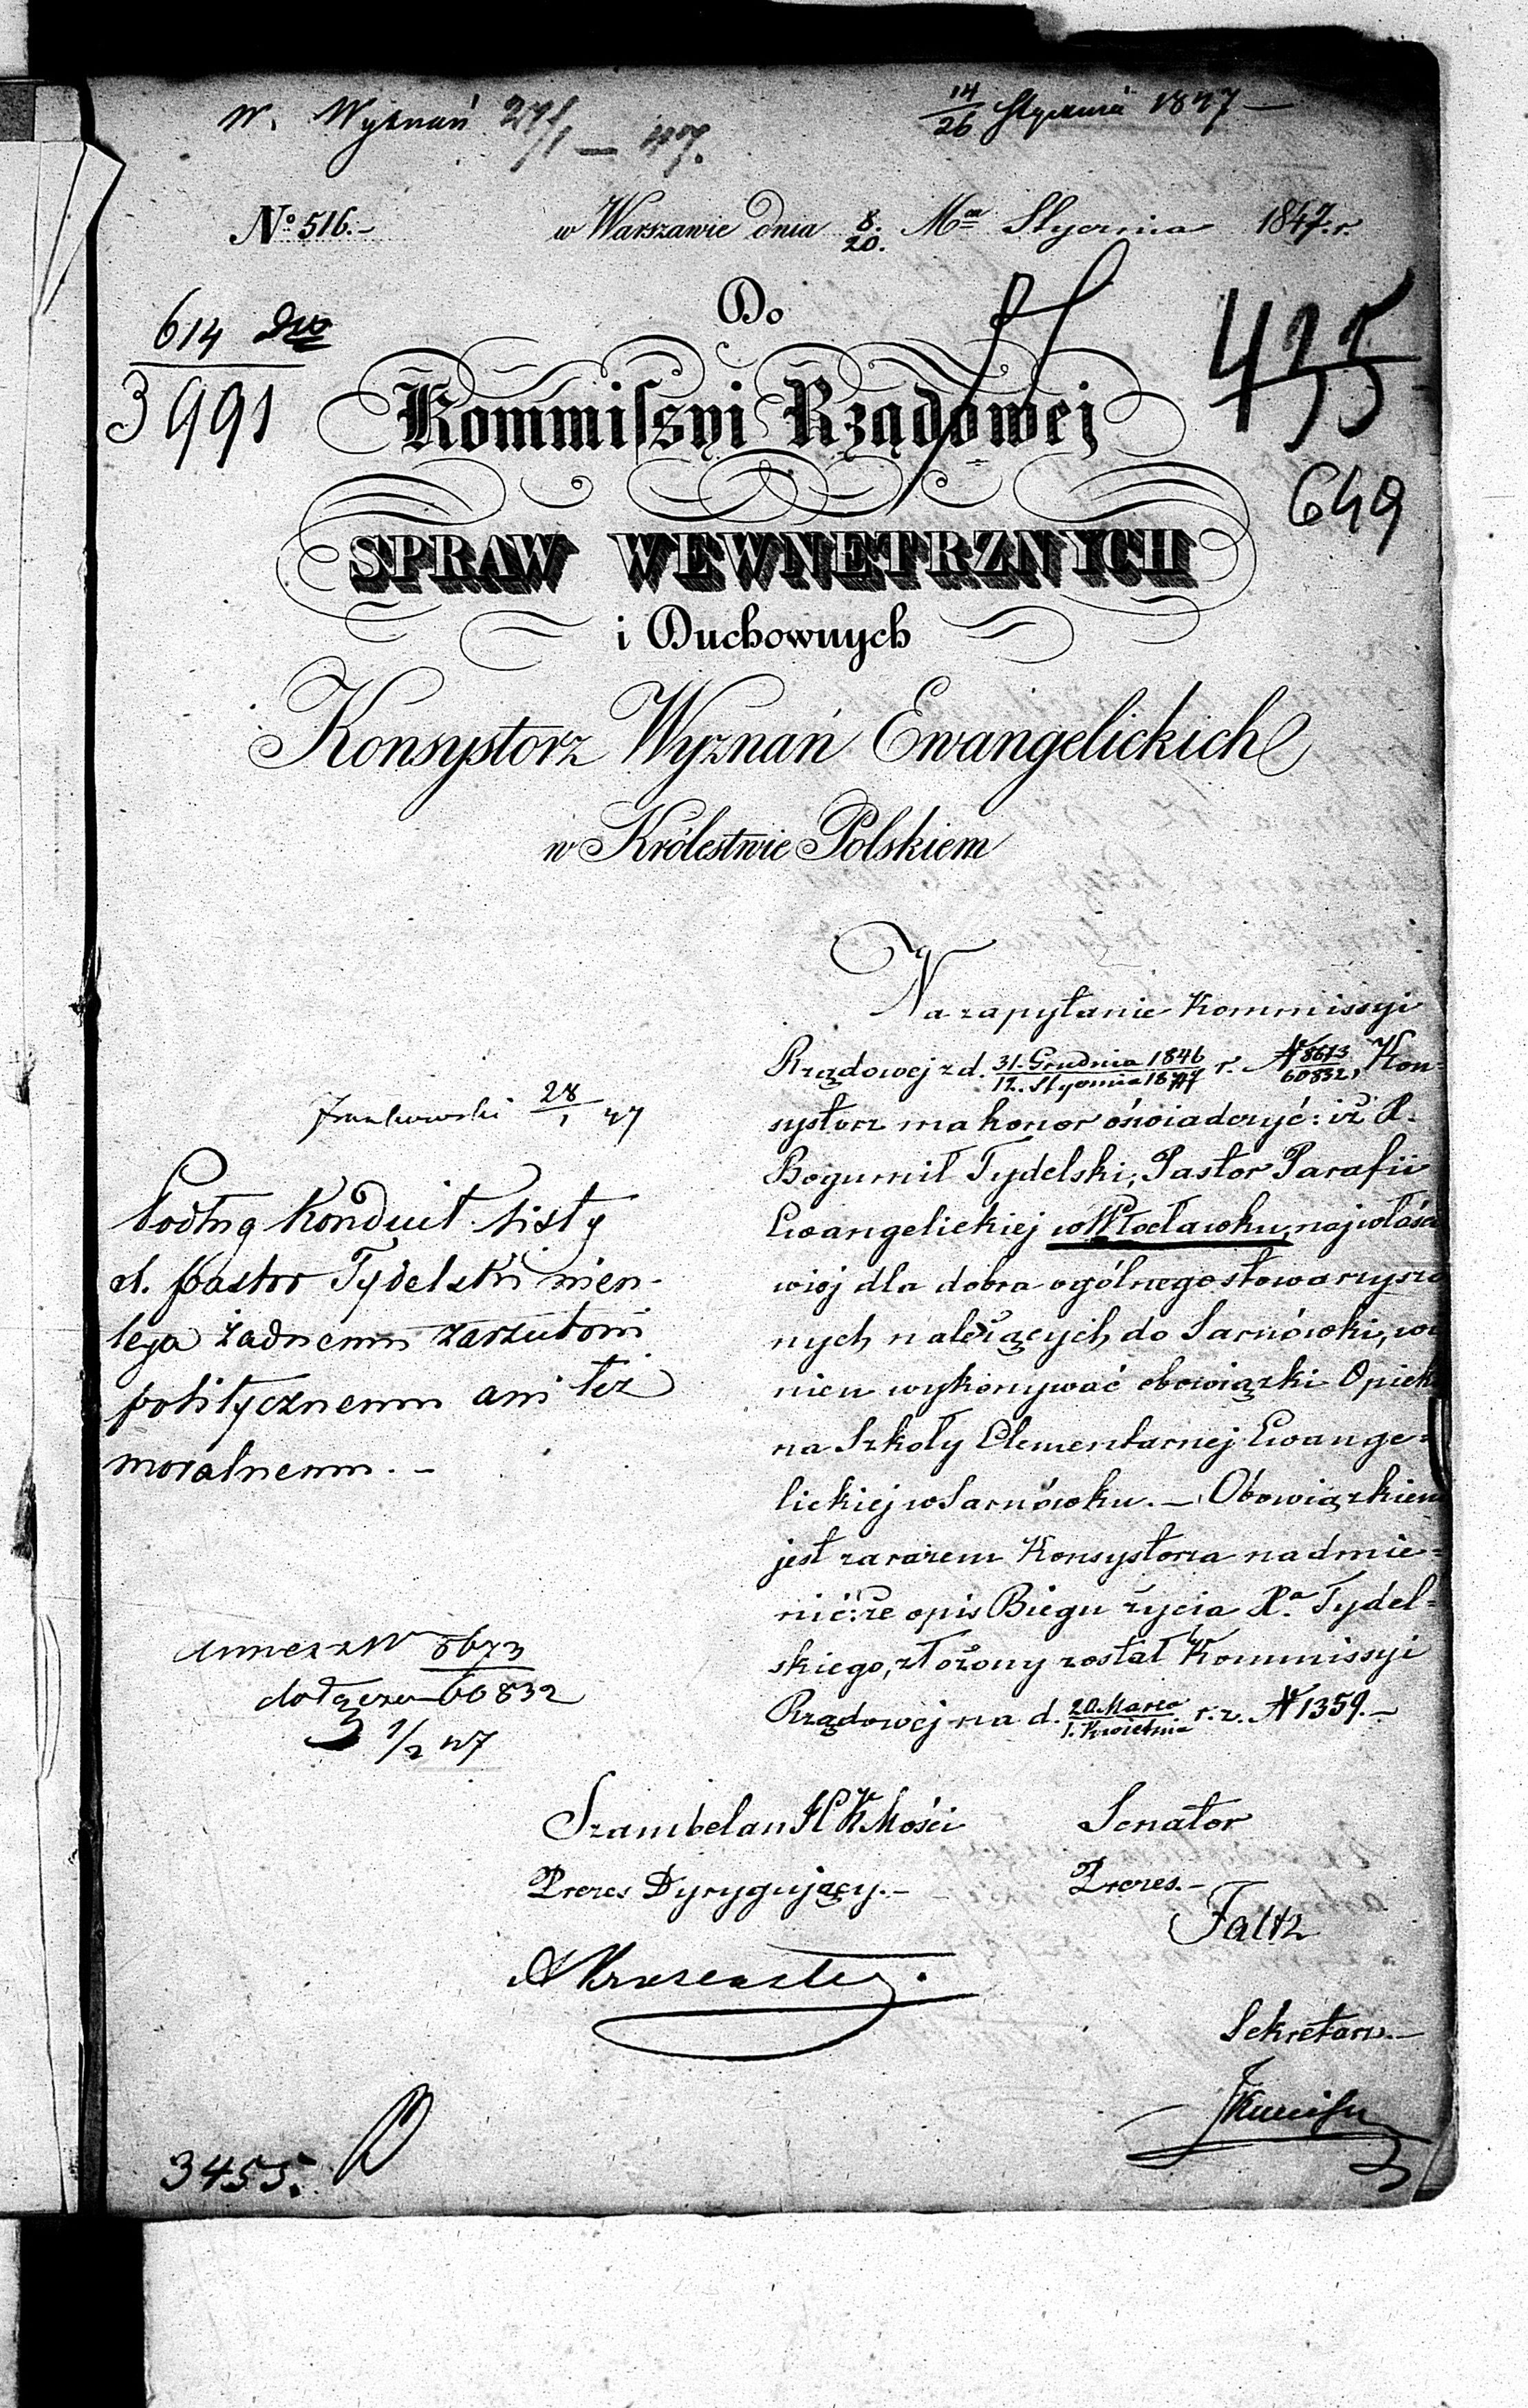 W. Wyznań 27/1 — 47.
14/26 Stycznia 1847 —
No 516.—
w Warszawie dnia 8./20. Mca Stycznia 1847. r.
614
3991
Do
435
649
Kommiſszyi Rządowej
SPRAW WEWNETRZNYCH
i Duchownych
Konsystorz Wyznań Ewangelickich
w Królestwie Polskiem
Na zapytanie Kommissyi
Rządowej z d. 31. Grudnia 1846/12. Stycznia 1847 r. N 8673/60832, Kon=
systorz ma honor oświadczyć: iż X.
Bogumił Tydelski, Pastor Parafii
Ewangelickiej w Włocławku, najwłaści
wiej dla dobra ogólnego stowarzyszo
nych należących do Sarnówki, wi
nien wykonywać obowiązki Opieku
na Szkoły Elementarnej Ewange=
lickiej w Sarnówku. — Obowiązkiem
jest zarazem Konsystorza nadmie=
nić: że opis Biegu życia Xa Tydel=
skiego, złożony został Kommissyi
Rządowej na d. 20. Marca/1. Kwietnia r. z. N 1359. —
28/1 47
Podług Konduit. listy
X. pastor Tydelski nieu-
lega żadnemu zarzutowi
politycznemu ani też
moralnemu. —
Annex z N 8673
dołączen 60832
1/2 47
Szambelan JCK Mości
Prezes Dyrygujący. —
Senator
Prezes. —
Faltz
Sekretarz. —
3455.